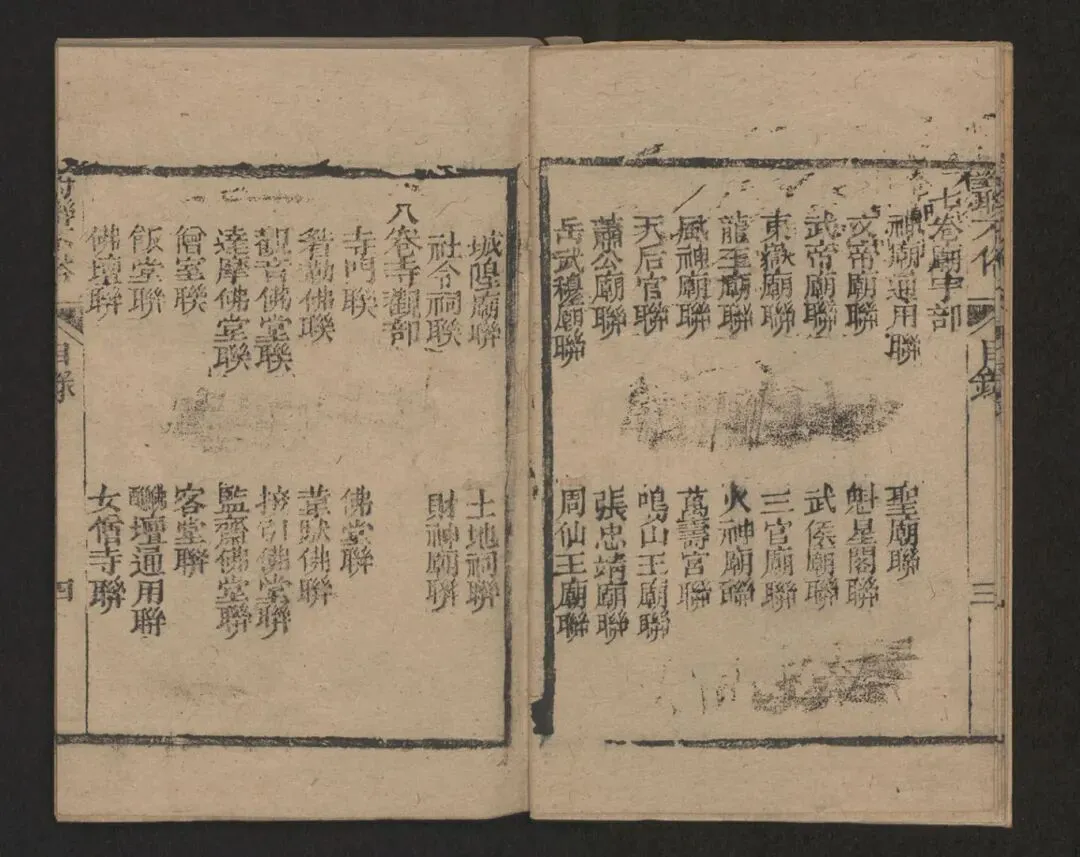 目錄 三
七卷廟宇部
神廟通用聯 聖廟聯
文帝廟聯 魁星閣聯
武帝廟聯 武侯廟聯
東嶽廟聯 三官廟聯
龍王廟聯 火神廟聯
風神廟聯 萬壽宮聯
天后官聯 鳴山王廟聯
蕭公廟聯 張忠靖廟聯
岳武穆廟聯 周仙王廟聯
城隍廟聯 土地祠聯
社令祠聯 財神廟聯
八卷寺觀部
寺門聯 佛堂聯
勒佛聯 韋馱佛聯
觀音佛堂聯 接引佛堂聯
達摩佛堂聯 監齋佛堂聯
僧室聯 客堂聯
飯堂聯 壇通用聯
佛壇聯 女僧寺聯
目錄 四